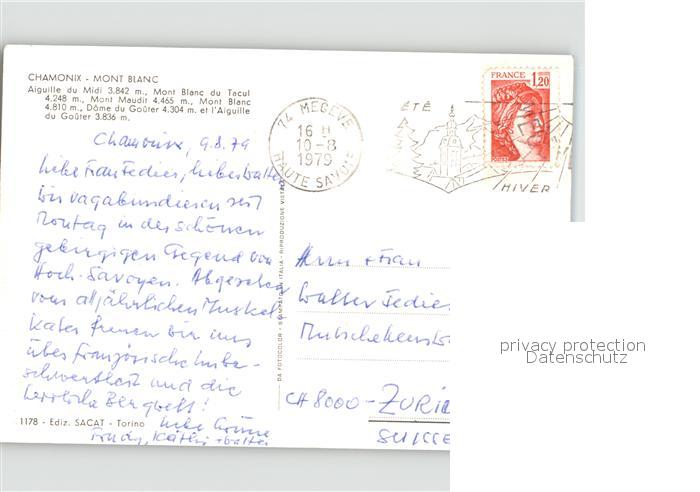 CHAMONIX - MONT BLANC
Aiguille du Midi 3.842 m., Mont Blanc du Tacul
4.248 m., Mont Maudit 4.465 m., Mont Blanc
4.810 m., Dôme du Goûter 4.304 m. et l'Aiguille
du Goûter 3.836 m.
Chamonix, 9.8.79
Liebe Frau Fedier, lieber Walter
Wir vagabundieren seit
Montag in der schönen
gebirgigen Gegend von
Hoch-Savoyen. Abgesehen
vom alljährlichen Muskel
kater freuen wir uns
über Französische
und die
Bergwelt!
Liebe Grüsse
1178 - Ediz. SACAT - Torino
DA FOTOCOLOR - STAMPATO IN ITALIA - RIPRODUZIONE VIETATA
74 MEGEVE
16 H
10-8
1979
HAUTE SAVOIE
ÉTÉ
HIVER
FRANCE 1,20
Herrn + Frau
Walter Fedier
CH 8000 - ZÜRIC
SUISSE
privacy protection
Datenschutz